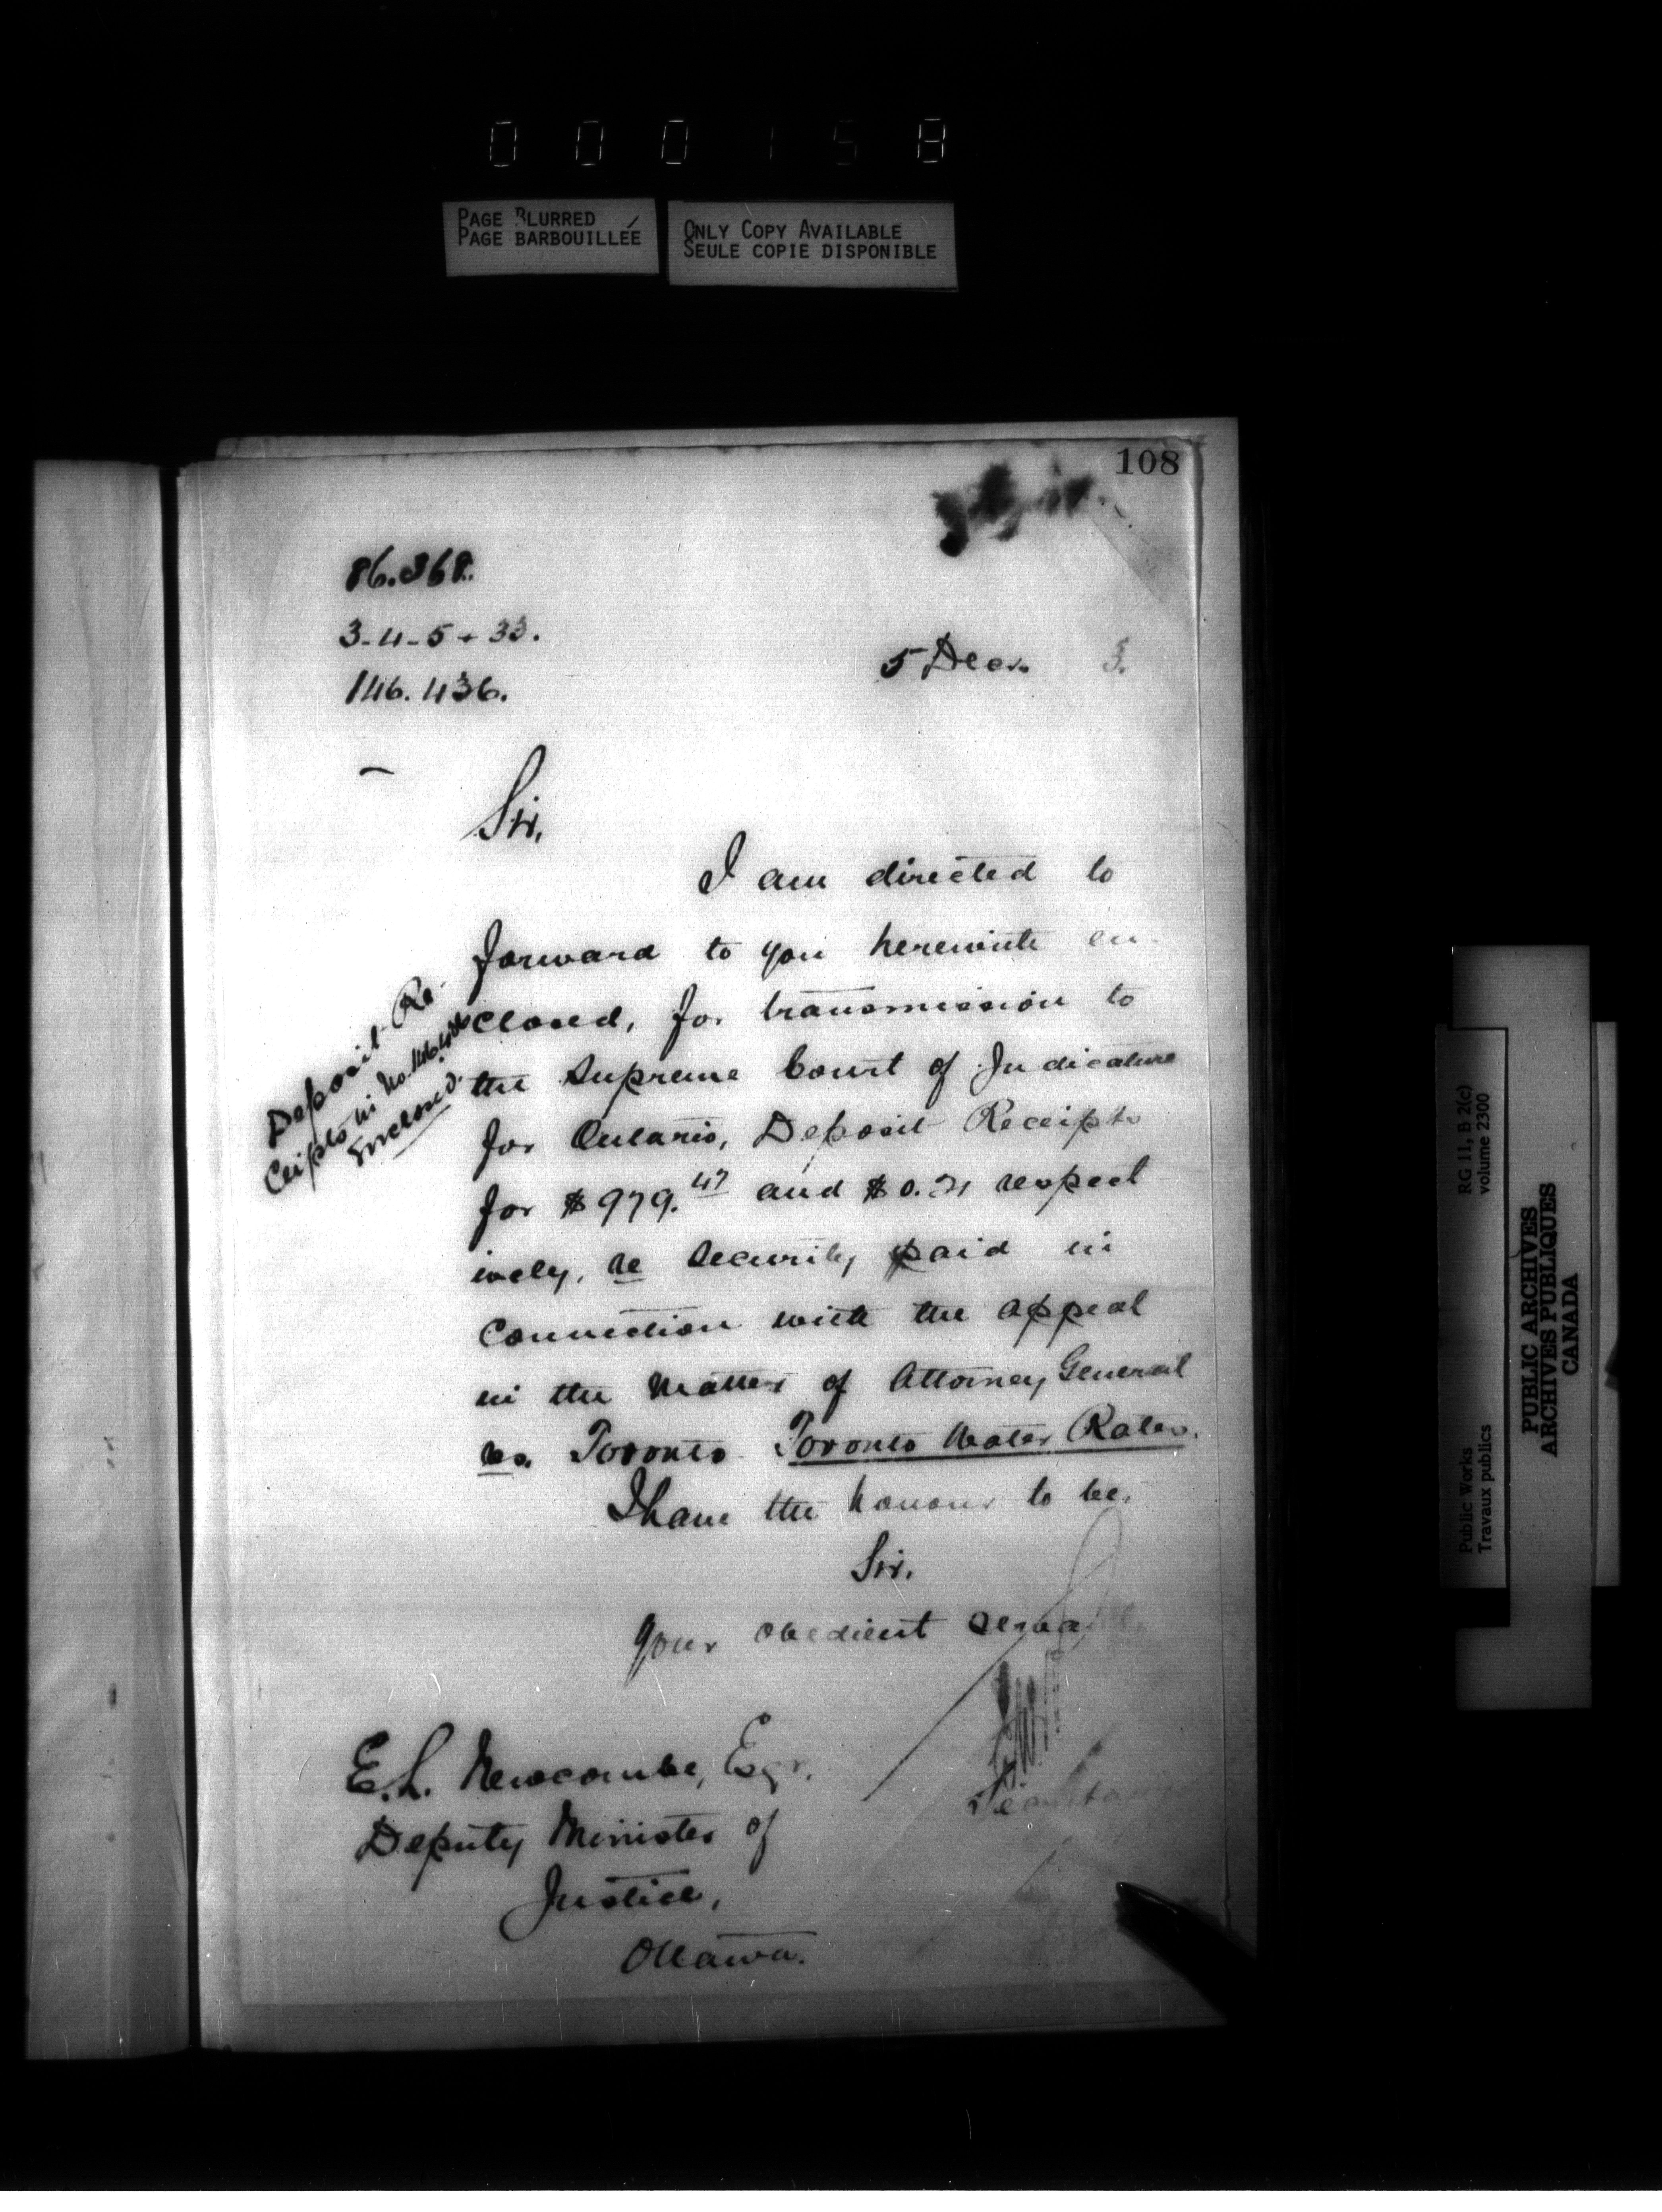 0 0 0 1 5 8
PAGE BLURRED
PAGE BARBOUILLÉE
ONLY COPY AVAILABLE
SEULE COPIE DISPONIBLE
108
86.368.
3-4-5 + 33.
146.436.
5 Decr. 3.
Sir,
I am directed to
forward to you herewith en-
closed, for transmission to
the Supreme Court of Judicature
for Ontario, Deposit Receipts
for $979.47 and $0.21 respect
ively, re security paid in
connection with the appeal
in the matter of Attorney General
vs. Toronto Toronto Water Rates.
I have the honour to be,
Sir,
Your obedient
Deposit Re-
ceipts in No. 146436
Enclosed.
E.L. Newcombe, Esqr.
Deputy Minister of
Justice,
Ottawa.
RG 11, B 2(c)
volume 2300
Public Works
Travaux publics
PUBLIC ARCHIVES
ARCHIVES PUBLIQUES
CANADA